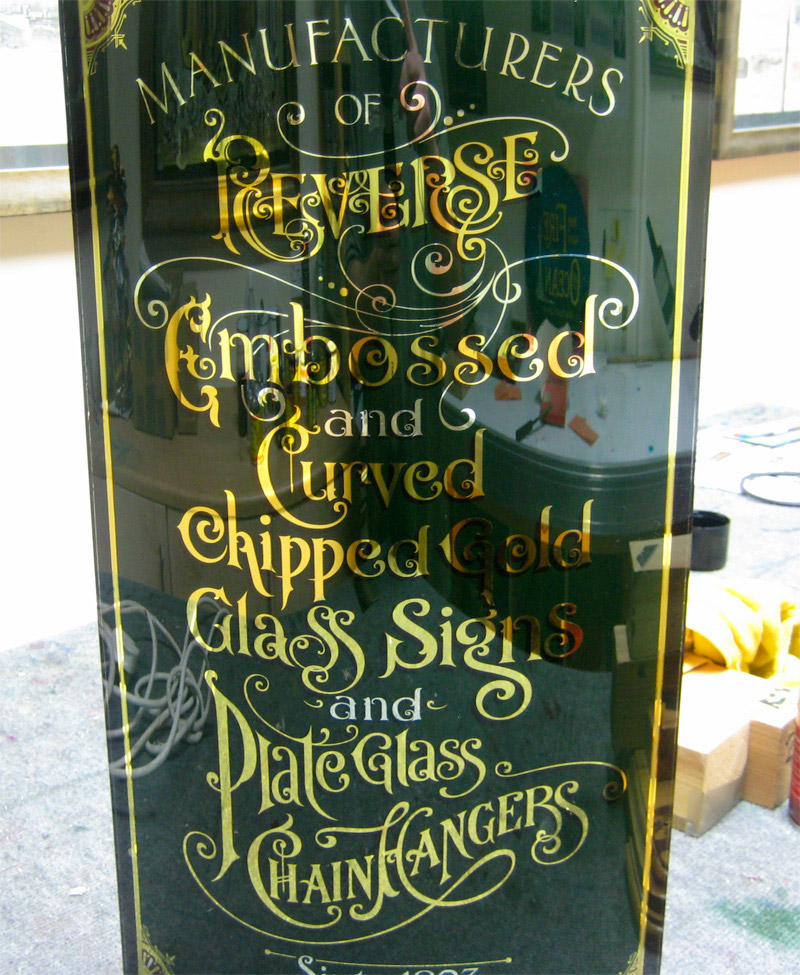 MANUFACTURERS
OF
REVERSE
Embossed
and
Curved
Chipped Gold
Glass Signs
and
Plate Glass
CHAIN HANGERS